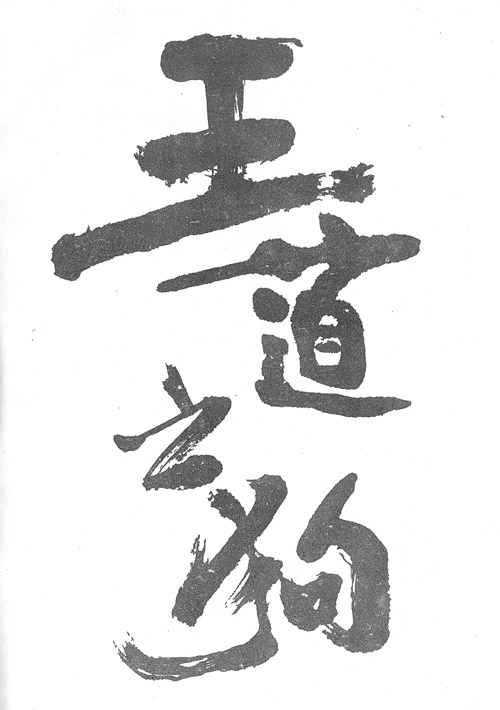 王道之狗